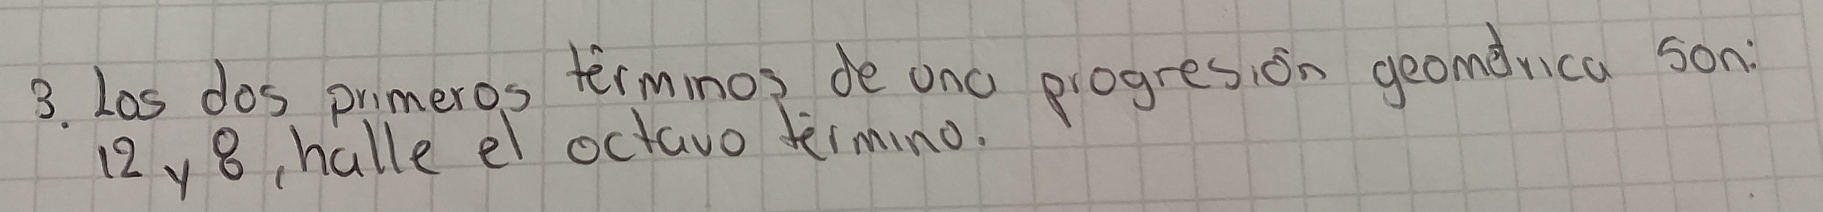 3. Los dos primeros términos de una progresión geométrica son:
12 y 8, halle el octavo término.